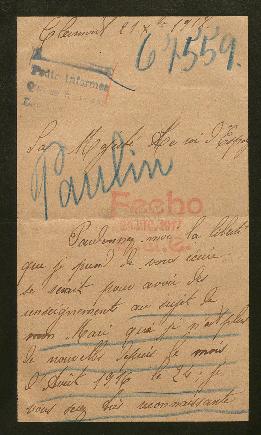 Clermont 21 Xbre 1917
64559.
Pedir informes
Sa Majesté Le roi d'Espagne
Paulin
Fecho
Pardonnez moi la liberté
que je prend de vous écrire
se serait pour avoir des
renseignement au sujet de
mon Mari que je n'ait plus
de nouvelles depuis le mois
d'Août 1916 le 24. je
vous serez très reconnaissante